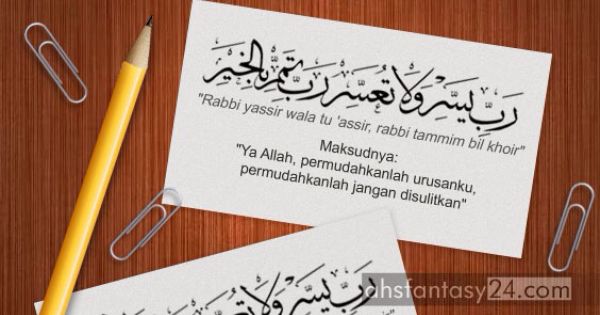 رَبِّ يَسِّرْ وَلَا تُعَسِّرْ رَبِّ تَمِّمْ بِالْخَيْرِ
"Rabbi yassir wala tu 'assir, rabbi tammim bil khoir"
Maksudnya:
"Ya Allah, permudahkanlah urusanku,
permudahkanlah jangan disulitkan"
رَبِّ يَسِّرْ وَلَا تُعَسِّرْ
ahsfantasy24.com